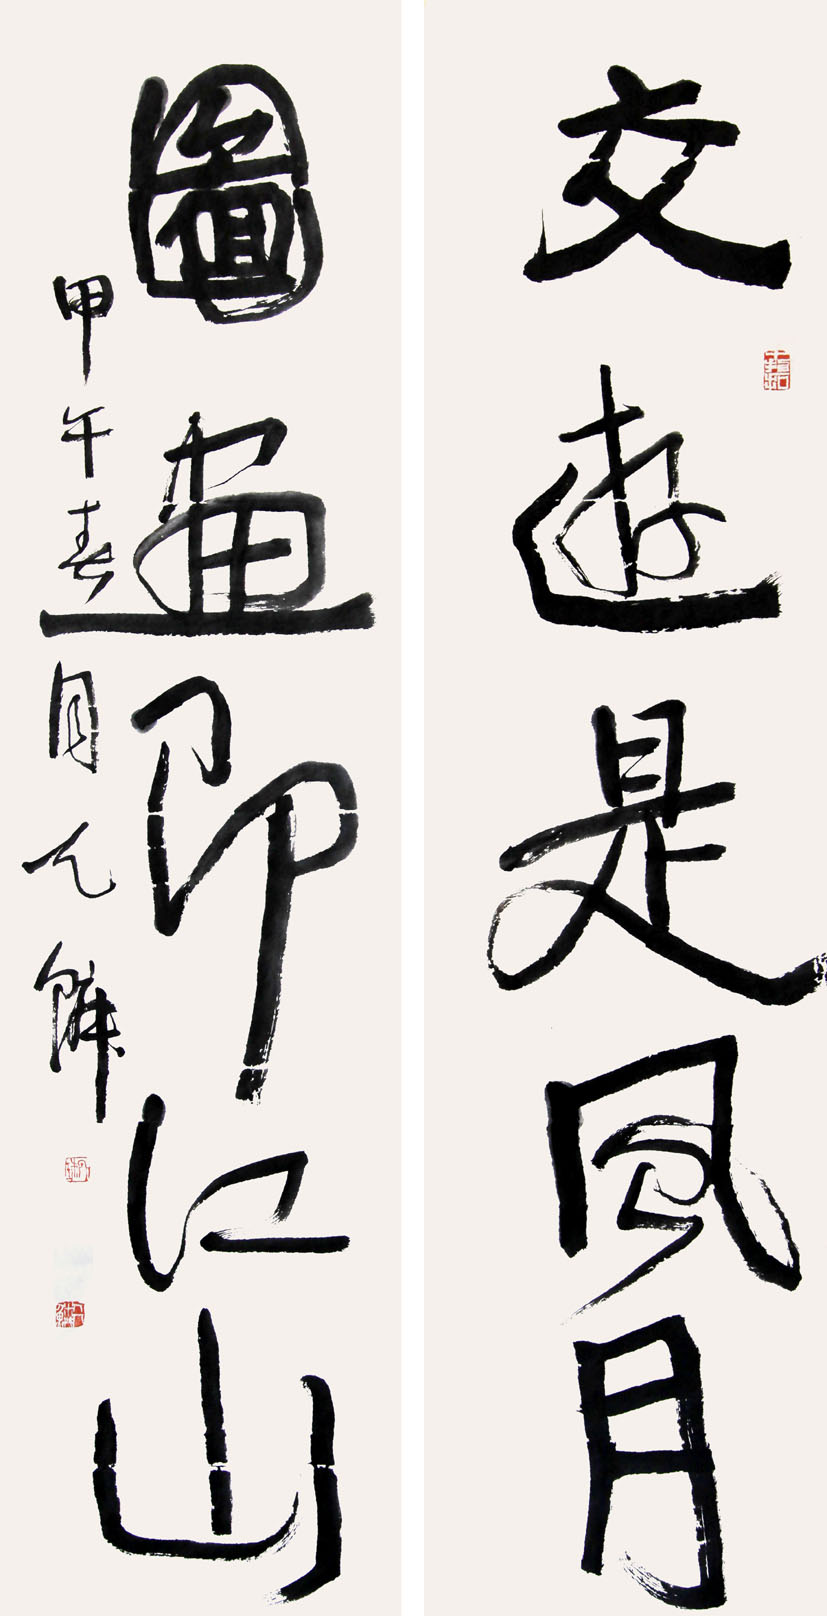 交遊是風月
圖畫即江山
甲午春月